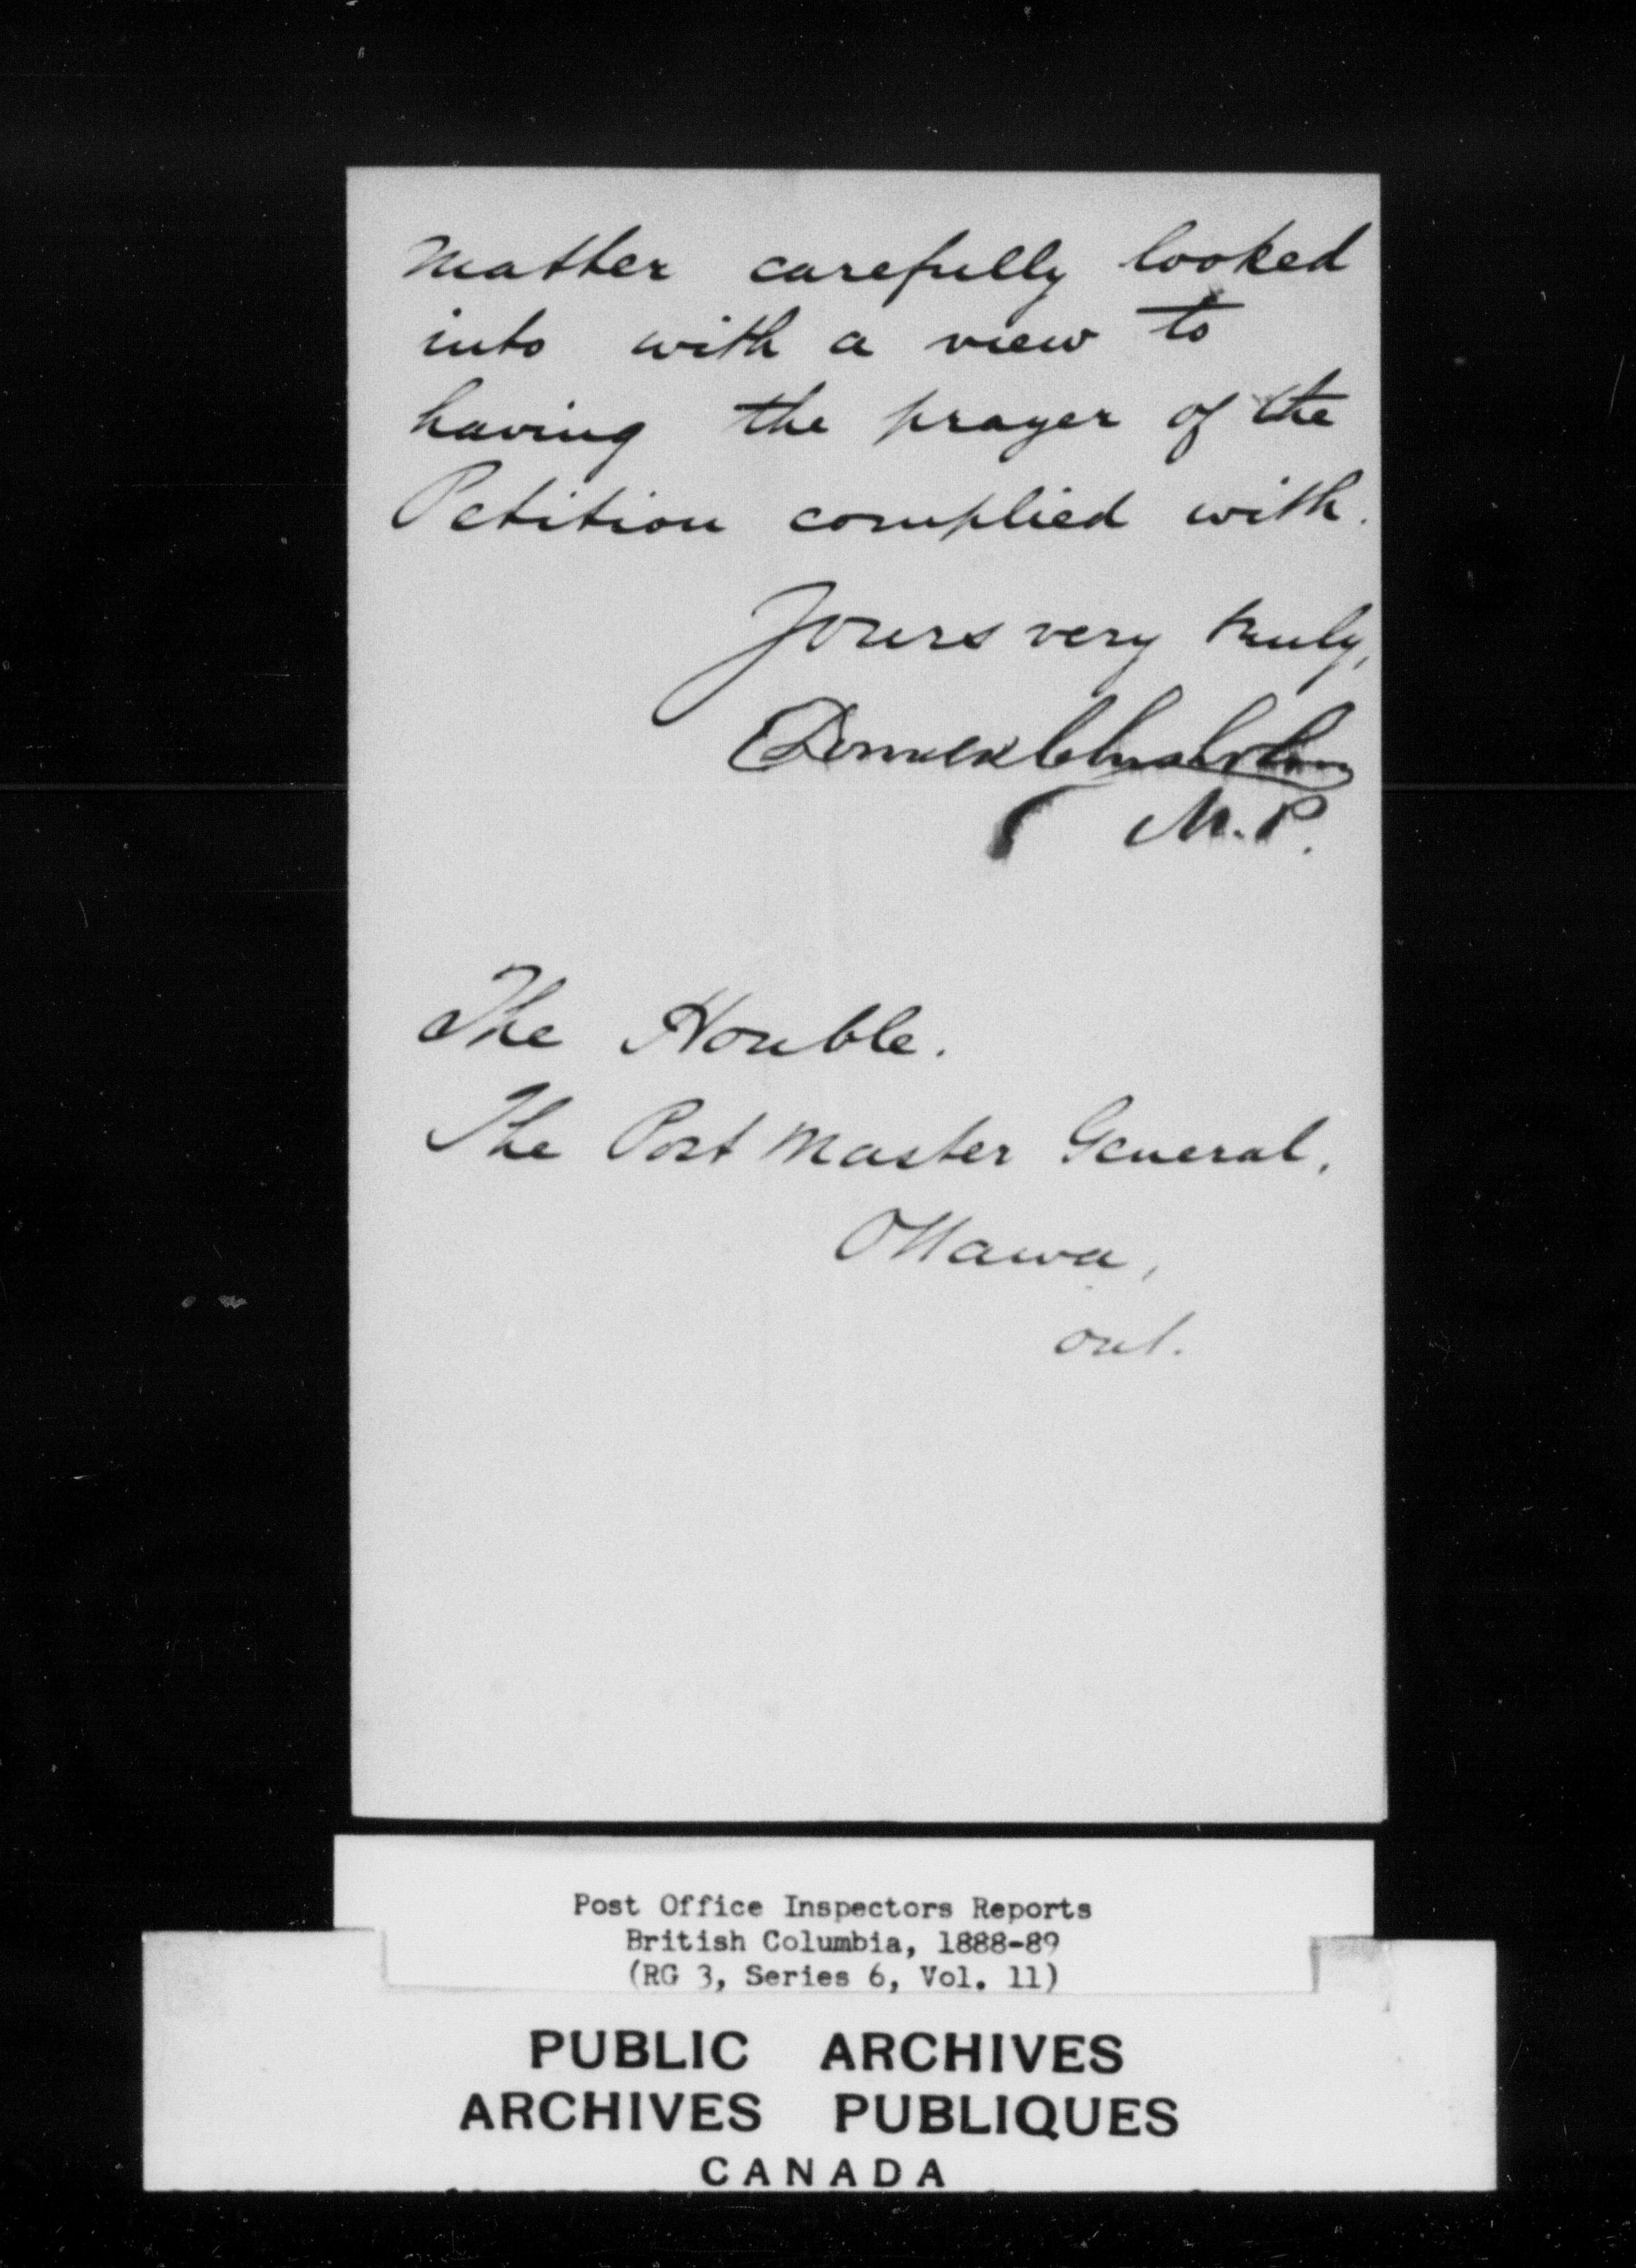 matter carefully looked
into with a view to
having the prayer of the
Petition complied with.
Yours very truly,
M.P.
The Honble.
The Post Master General,
Ottawa,
Ont.
Post Office Inspectors Reports
British Columbia, 1888-89
(RG 3, Series 6, Vol. 11)
PUBLIC ARCHIVES
ARCHIVES PUBLIQUES
CANADA